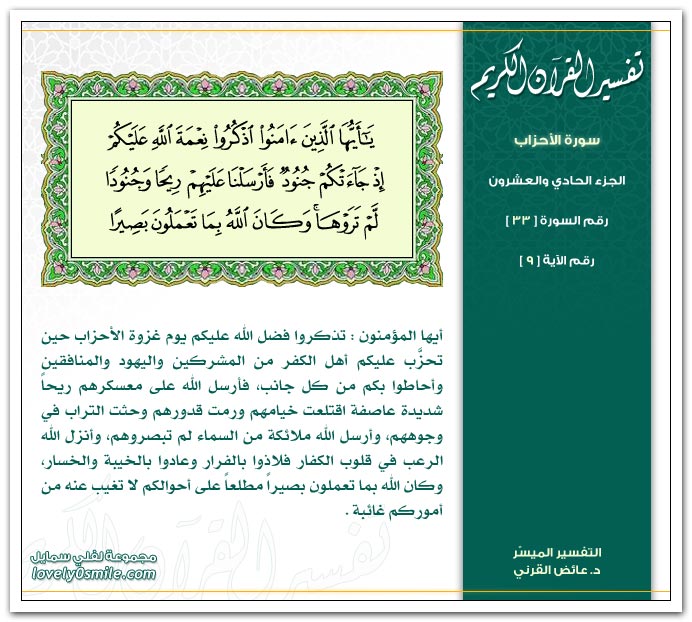 تفسير القرآن الكريم
سورة الأحزاب
الجزء الحادي والعشرون
رقم السورة [ ٣٣ ]
رقم الآية [ ٩ ]
يَٰٓأَيُّهَا ٱلَّذِينَ ءَامَنُوا۟ ٱذْكُرُوا۟ نِعْمَةَ ٱللَّهِ عَلَيْكُمْ
إِذْ جَآءَتْكُمْ جُنُودٌ فَأَرْسَلْنَا عَلَيْهِمْ رِيحًا وَجُنُودًا
لَّمْ تَرَوْهَا ۚ وَكَانَ ٱللَّهُ بِمَا تَعْمَلُونَ بَصِيرًا
أيها المؤمنون : تذكروا فضل الله عليكم يوم غزوة الأحزاب حين
تحزَّب عليكم أهل الكفر من المشركين واليهود والمنافقين
وأحاطوا بكم من كل جانب، فأرسل الله على معسكرهم ريحاً
شديدة عاصفة اقتلعت خيامهم ورمت قدورهم وحثت التراب في
وجوههم، وأرسل الله ملائكة من السماء لم تبصروهم، وأنزل الله
الرعب في قلوب الكفار فلاذوا بالفرار وعادوا بالخيبة والخسار،
وكان الله بما تعملون بصيراً مطلعاً على أحوالكم لا تغيب عنه من
أموركم غائبة .
تفسير القرآن الكريم
التفسير الميسّر
د. عائض القرني
مجموعة لفلي سمايل
lovely0smile.com